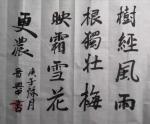 樹經風雨
根獨壯梅
映霜雪花
更農
庚子月
書